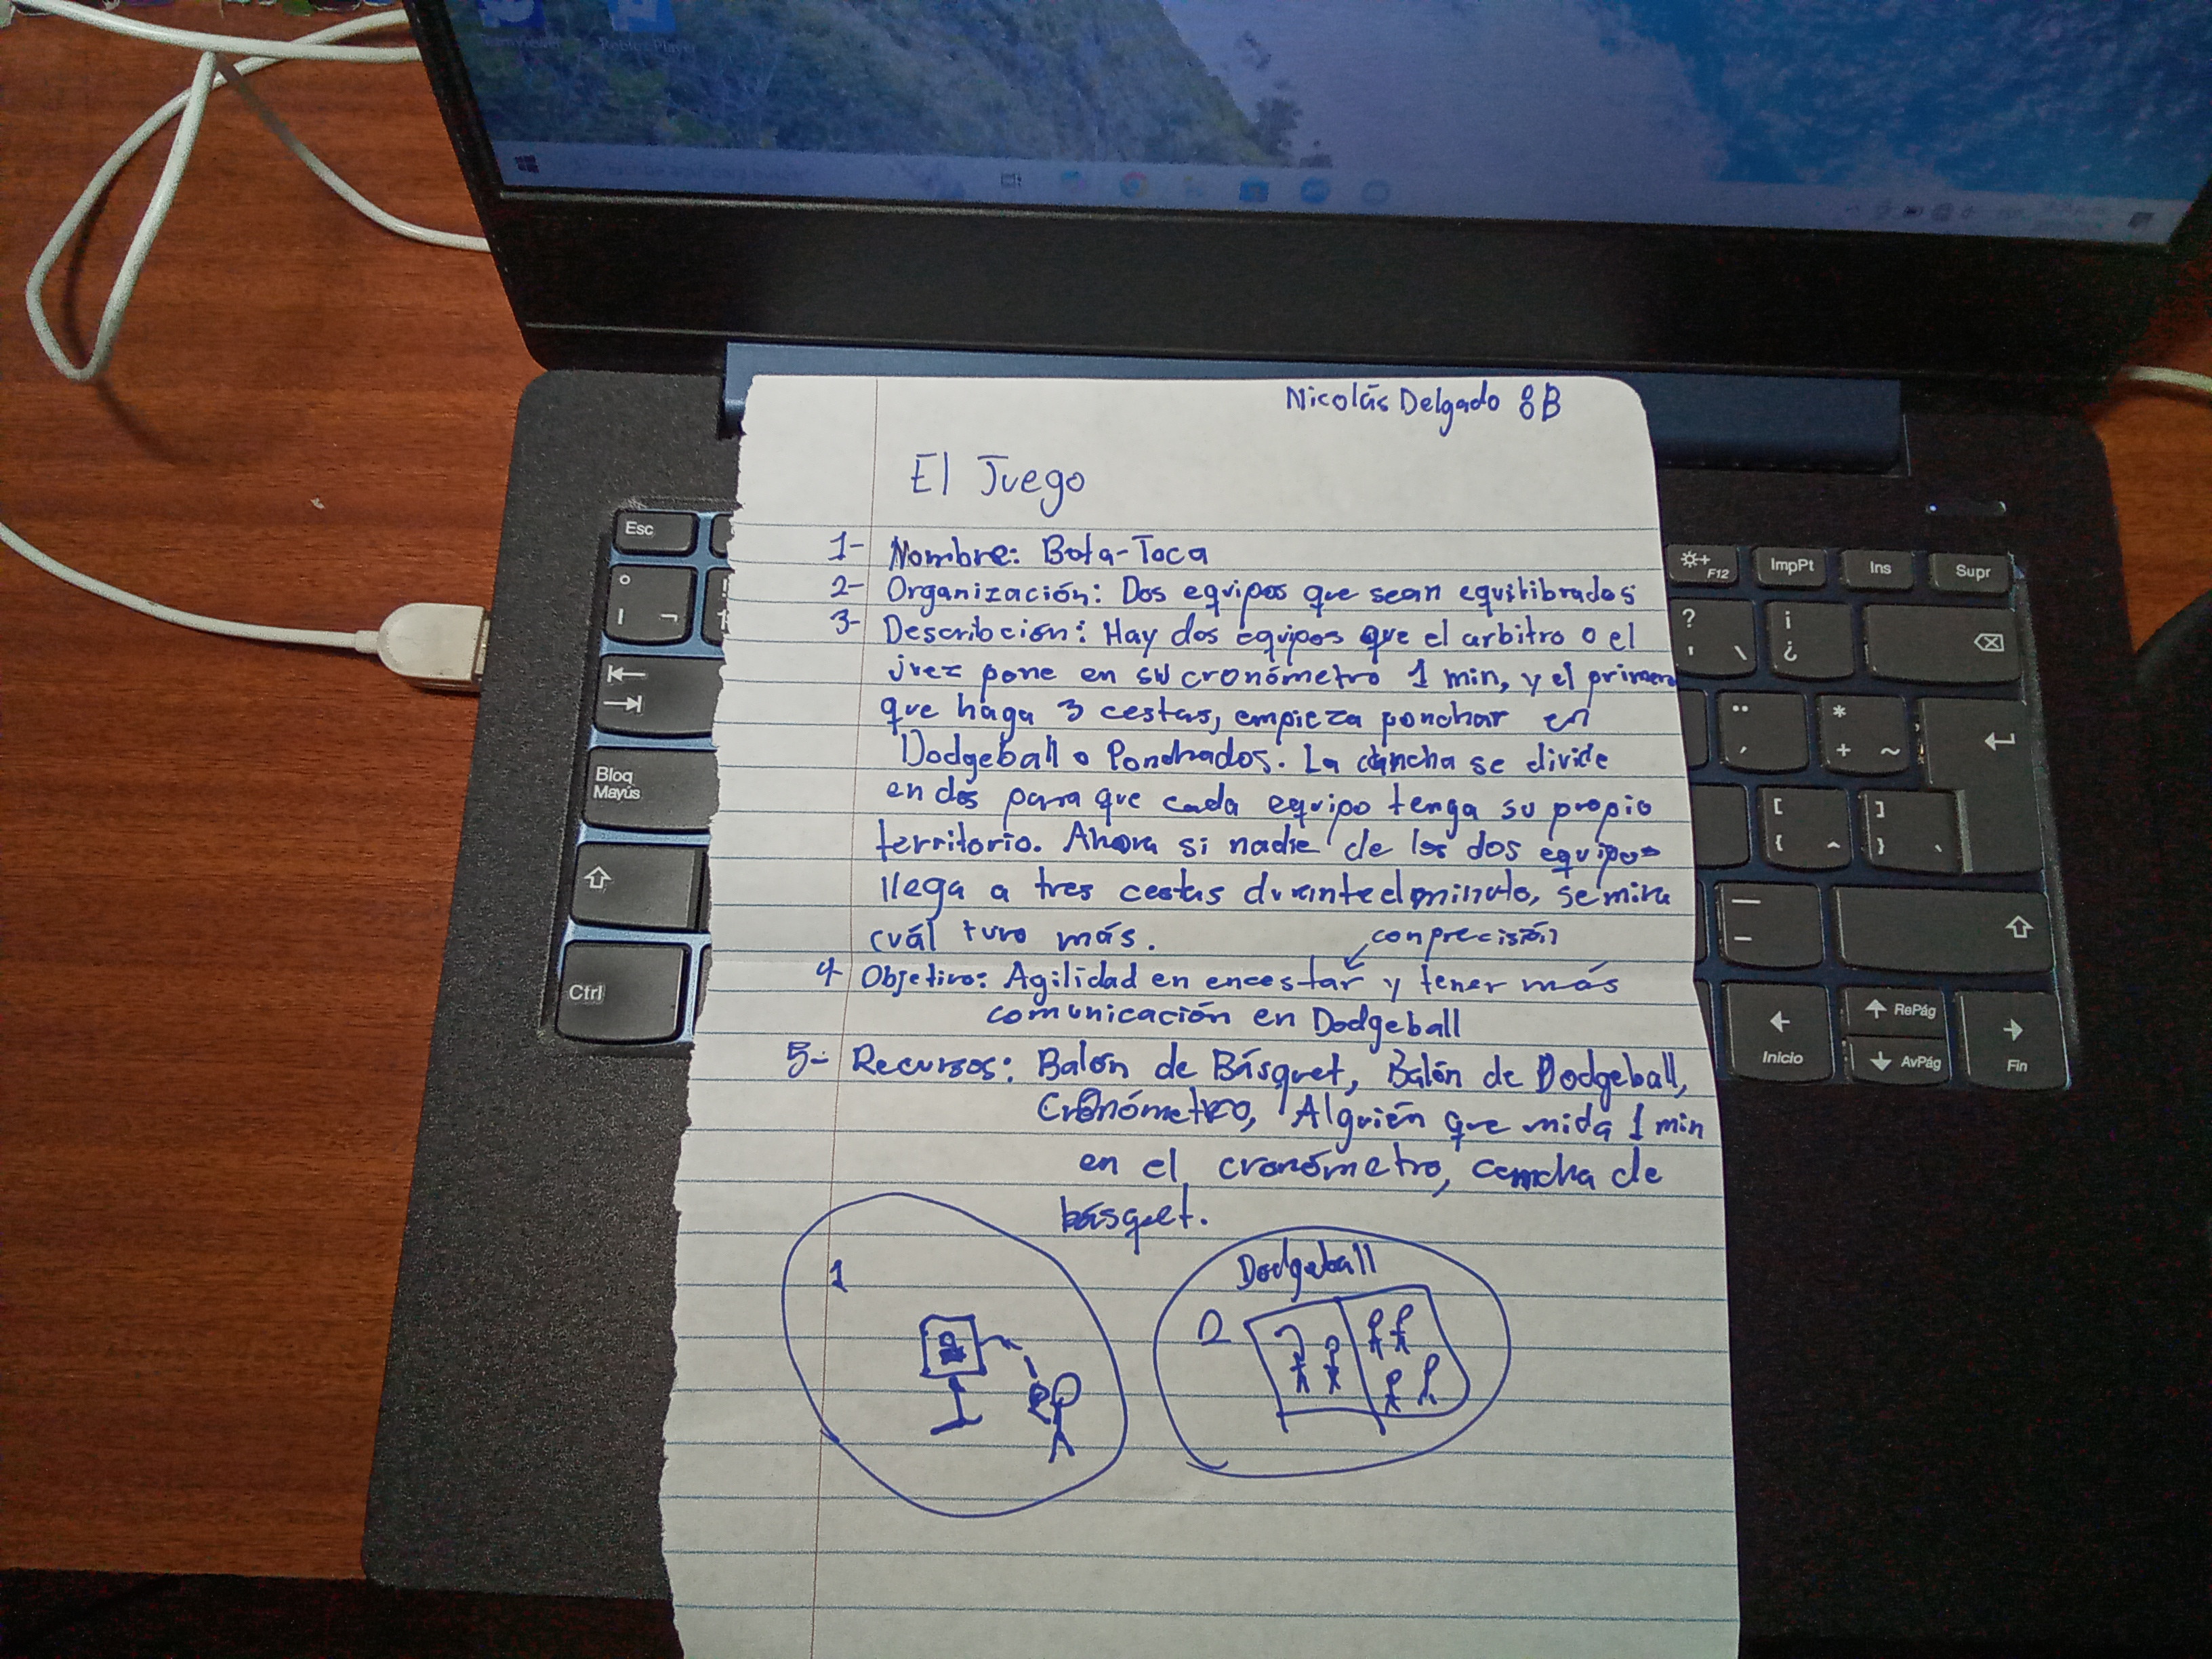 Roblox Player
Nicolás Delgado 8B
El Juego
1- Nombre: Bota-Toca
2- Organización: Dos equipos que sean equilibrados
3- Describción: Hay dos equipos que el arbitro o el
juez pone en su cronómetro 1 min, y el primero
que haga 3 cestas, empieza ponchar en
Dodgeball o Ponchados. La cancha se divide
en dos para que cada equipo tenga su propio
territorio. Ahora si nadie de los dos equipos
llega a tres cestas durante el minuto, se mira
cuál tuvo más.
con precisión
4- Objetivo: Agilidad en encestar y tener más
comunicación en Dodgeball
5- Recursos: Balón de Básquet, Balón de Dodgeball,
Cronómetro, Alguién que mida 1 min
en el cronómetro, cancha de
básquet.
1
Dodgeball
2
Esc
F12
ImpPt
Ins
Supr
° | ¬
? ' \
¡ ¿
Bloq
Mayús
¨ ´
* + ~
[ { ^
] } `
Ctrl
Inicio
RePág
AvPág
Fin